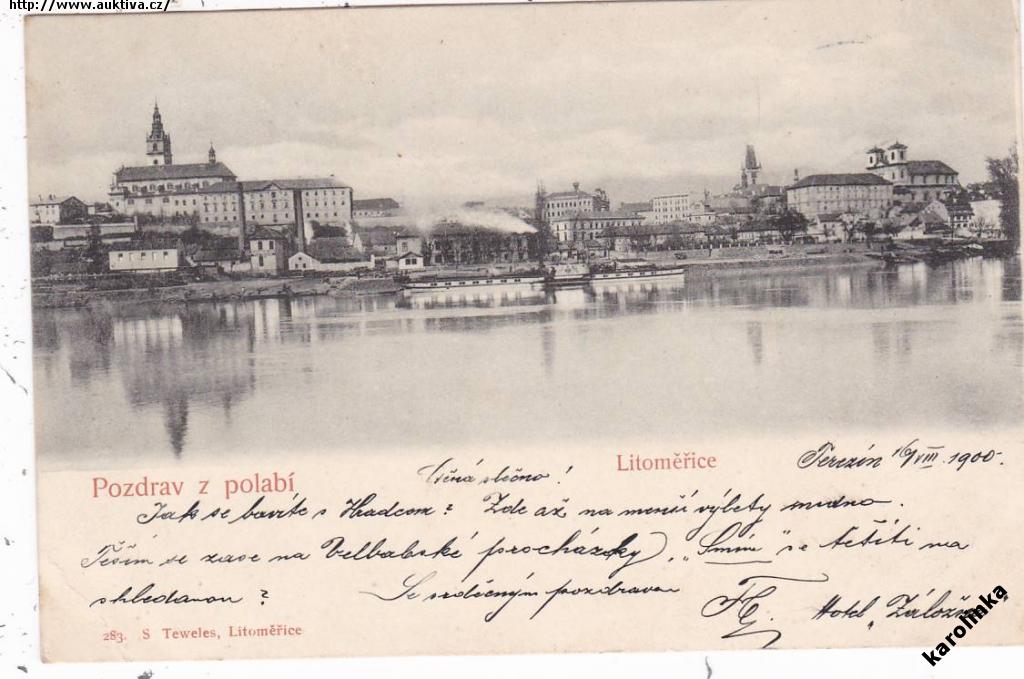 http://www.auktiva.cz/
Litoměřice
Terezín 16/VIII. 1900.
Pozdrav z polabí
slečno!
Jak se bavíte s Hradcem? Zde až na menší výlety nudno.
Těším se zase na procházky, „Smím" se těšiti na
shledanou? Se srdečným pozdravem
Hotel „Záložna
283. S Teweles, Litoměřice
karolinka